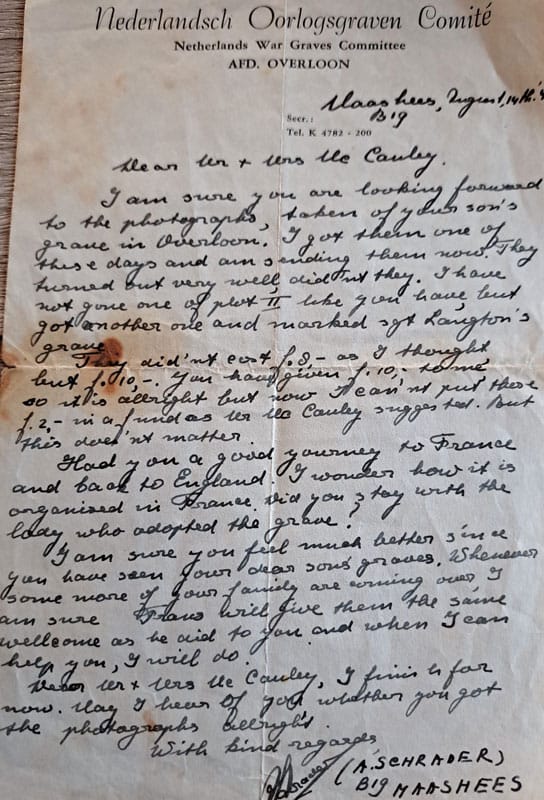 Nederlandsch Oorlogsgraven Comité
Netherlands War Graves Committee
AFD. OVERLOON
Maashees, August, 14th
Secr.: B19
Tel. K 4782 - 200
Dear Mr + Mrs Mc Cauley.
I am sure you are looking forward
to the photographs, taken of your son's
grave in Overloon. I got them one of
these days and am sending them now. They
turned out very well did'nt they. I have
not gone one of plot II like you have, but
got another one and marked sgt Langton's
grave.
They did'nt cost f.8,- as I thought
but f.10,-. You have given f.10,- to me
so it is allright but now I can'nt put those
f.2,- in a fund as Mr Mc Cauley suggested. But
this does'nt matter.
Had you a good yourney to France
and back to England. I wonder how it is
organised in France. Did you stay with the
lady who adopted the grave?
I am sure you feel much better since
you have seen your dear sons' graves. Whenever
some more of your family are coming over I
am sure Frans will give them the same
wellcome as he did to you and when I can
help you, I will do.
Dear Mr + Mrs Mc Cauley, I finish for
now. May I hear of you whether you got
the photographs allright.
With kind regards
Schrader
(A. SCHRADER)
B19 MAASHEES